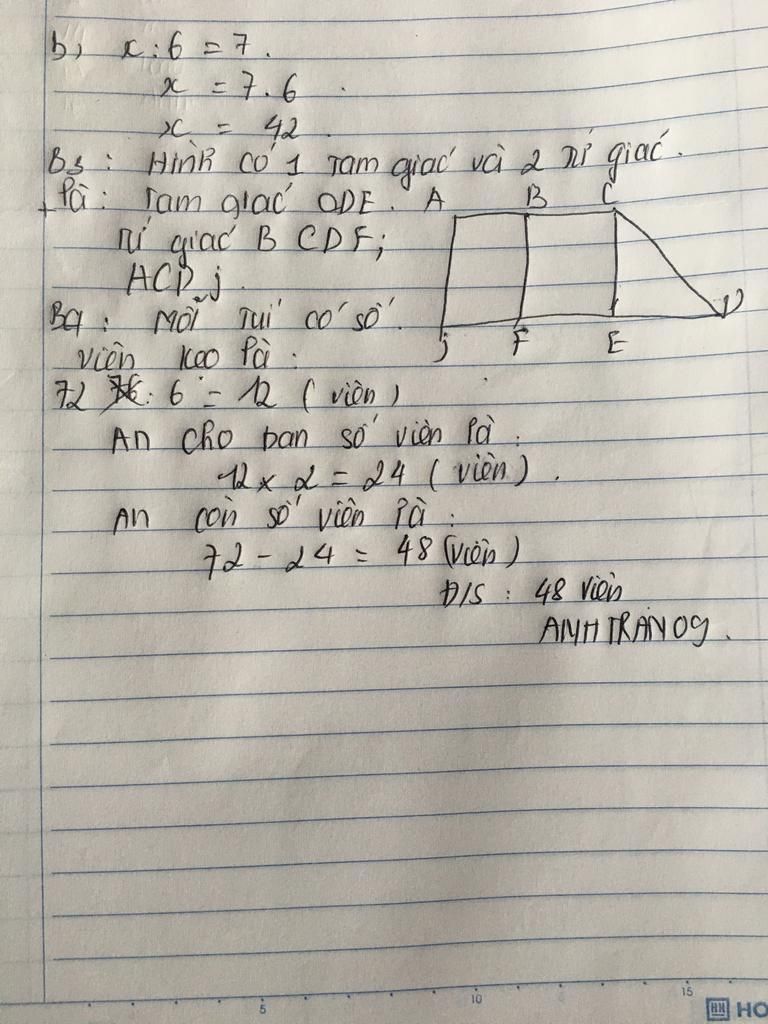 b, x : 6 = 7.
x = 7.6
x = 42.
B3 : Hình có 1 Tam giác và 2 Tứ giác.
Là : Tam giác ODE. A B C
Tứ giác B CDF;
ACD j.
B4 : Mỗi Túi có số
D
j F E
viên kẹo là :
72 : 6 = 12 (viên)
An cho bạn số viên là :
12 x 2 = 24 (viên).
An còn số viên là :
72 - 24 = 48 (viên)
Đ/S : 48 viên
ANHTRAN09.
5 10 15
HO